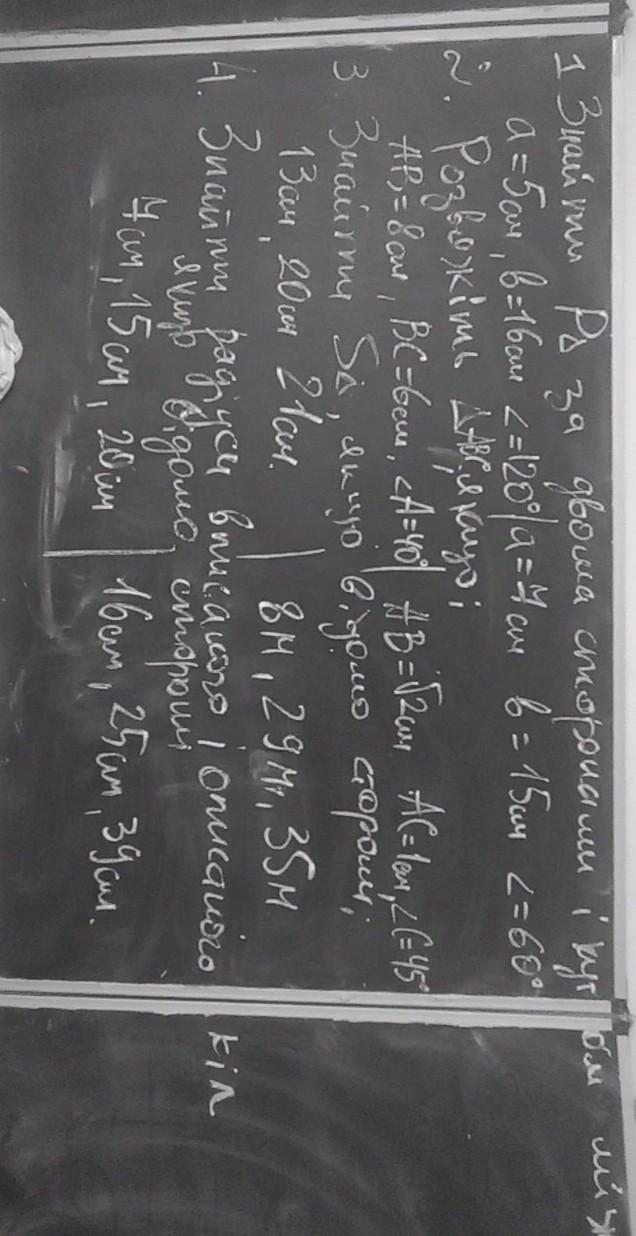 1 Знайти P∆ за двома сторонами і кутом між
a=5см, b=16см ∠=120° | a=7см b=15см ∠=60°
2. Розвяжіть ∆ABC, якщо:
AB=8см, BC=6см, ∠A=40° | AB=√2см AC=1см, ∠C=45°
3 Знайти S∆, якщо відомо сторони:
13см, 20см 21см. | 8м, 29м, 35м
4. Знайти радіуси вписаного і описаного кіл
якщо відомо сторони
7см, 15см, 20см | 16см, 25см, 39см.